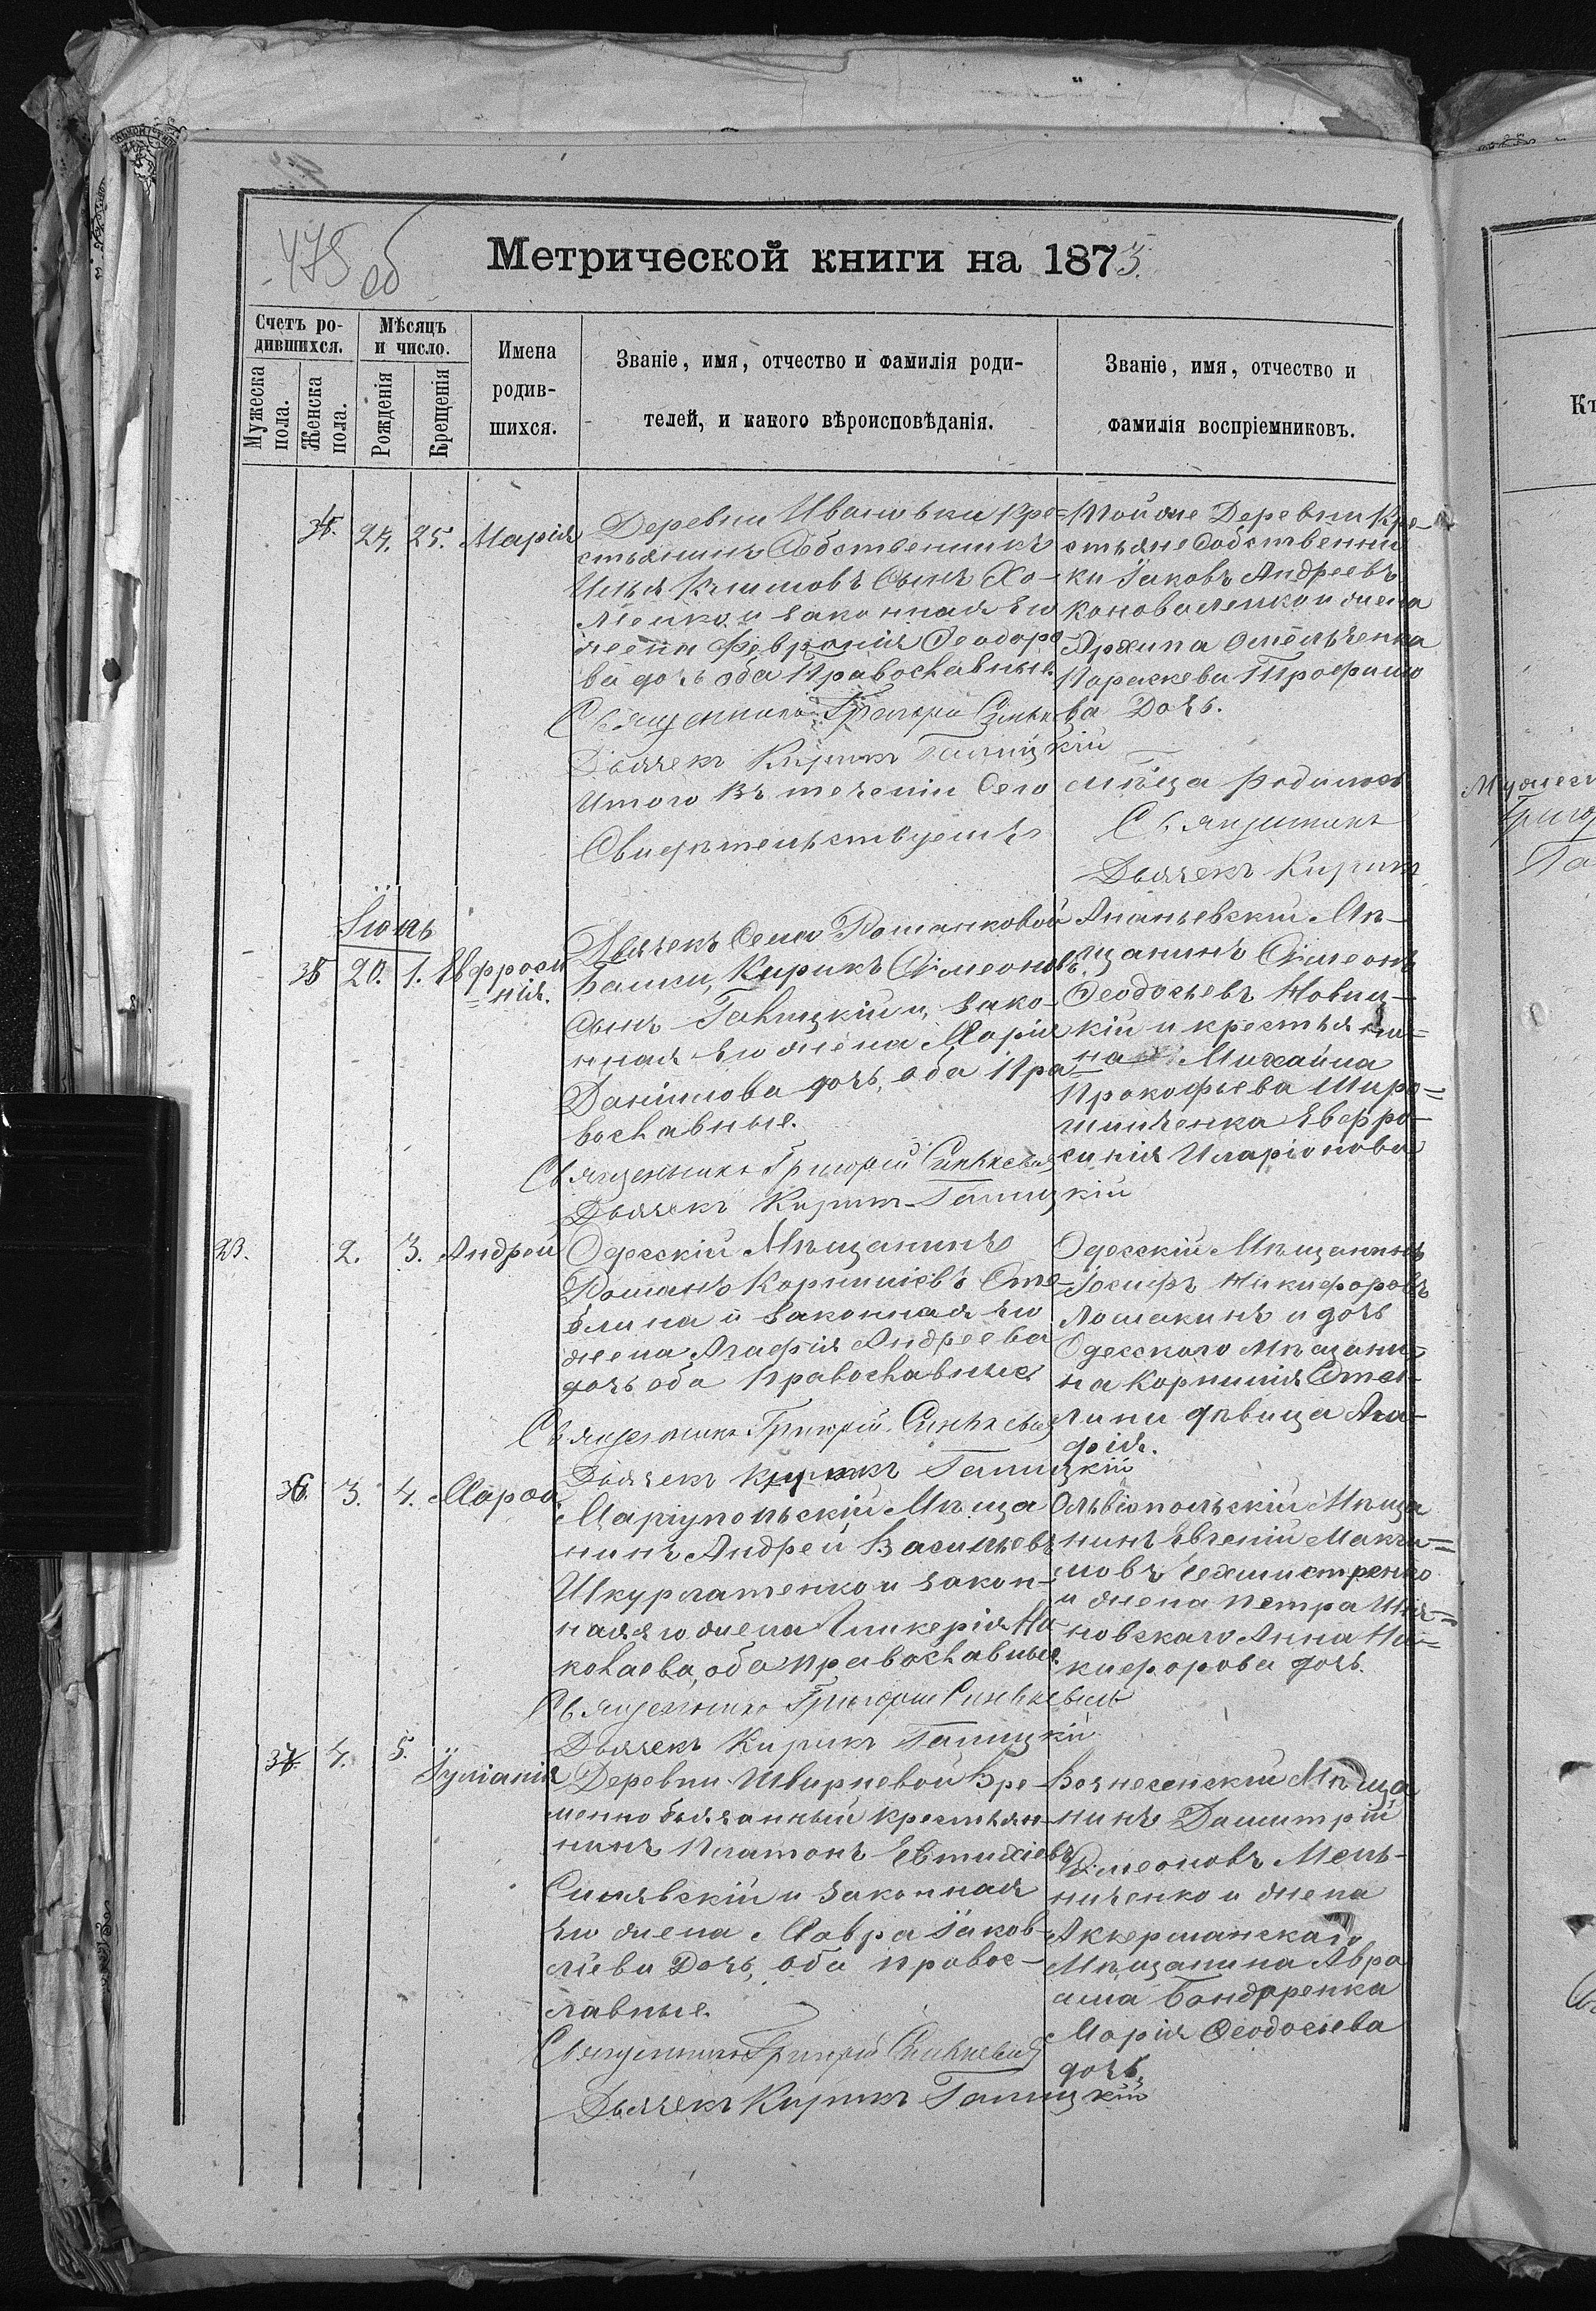 475 об
Метрической книги на 1873.
Счетъ ро-
дившихся.
Мѣсяцъ
и число.
Мужеска
пола.
Женска
пола.
Рожденія
Крещенія
Имена
родив-
шихся.
Званіе, имя, отчество и фамилія роди-
телей, и какого вѣроисповѣданія.
Званіе, имя, отчество и
фамилія воспріемниковъ.
24. 25. Марія
Деревни Ивановки Кре=
стьянинъ Собственникъ
Илья Климовъ Сынъ Хо-
менко и законная его
жена Феврония Феодоро
ва дочь оба Православные.
Священникъ Григорій
Дьячекъ Кирикъ Галицкій
Итого въ теченіи Сего
Свидѣтельствуемъ
Той же Деревни Кре-
стьяне Собственни
ки Іаковъ Андреевъ
Коноваленко и жена
Архипа Омельченка
Параскева Трофимо
ва Дочь.
мѣсяца родилось
Священникъ
Дьячекъ Кирикъ
Іюнь
35 20. 1. Евфроси
=нія.
Дьячекъ Села Романковой
Балки, Кирикъ Симеоновъ
Сынъ Галицкій и, зако-
нная его жена Марія
Даніилова дочь, оба Пра
вославные.
Священникъ Григорій Синькевичъ
Дьячекъ Кирикъ Галицкій
Ананьевскій Мѣ-
щанинъ Симеонъ
Феодосьевъ Новиц-
кій и крестьяни=
на Михаила
Прокофьева Миро=
шниченка Евфро-
синія Иларіонова
23. 2. 3. Андрей
Одесскій Мѣщанинъ
Романъ Корниліевъ Сте-
блина и законная его
жена Агафія Андреева
дочь оба Православные
Священникъ Григорій Синькевичъ
Дьячекъ Кирикъ Галицкій
Одесскій Мѣщанинъ
Іосифъ Никифоровъ
Лошакинъ и дочь
Одесскаго Мѣщани-
на Корнилія Стеб-
лини дѣвица Ага-
фія.
36. 3. 4. Марфа
Маріупольскій Мѣща
нинъ Андрей Васильевъ
Шкурлатенко и закон-
ная его жена Гликерія Ни
колаева, оба православные.
Священникъ Григорій Синькевичъ
Дьячекъ Кирикъ Галицкій
Ольвіопольскій Мѣща
нинъ Евгеній Макси=
мовъ
и жена Петра
новскаго Анна Ни=
кифорова дочь.
37. 4. 5. Іуліанія
Деревни Ивирневой Вре-
менно обязанный крестьян-
нинъ Платонъ Евтихіевъ
Синявскій и законная
его жена Мавра Іаков-
лева Дочь, оба правос-
лавные.
Священникъ Григорій Синькевичъ
Дьячекъ Кирикъ Галицкій
Вознесенскій Мѣща
нинъ Димитрій
Симеоновъ Мель-
ниченко и жена
Аккерманскаго
Мѣщанина Авра
ама Бондаренка
Марія Феодосіева
дочь